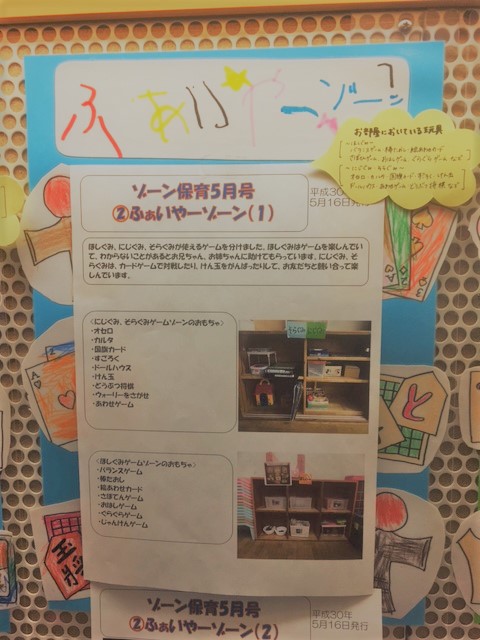 ふぁいやーゾーン
お部屋においている玩具
ゾーン保育5月号
②ふぁいやーゾーン(1)
平成30年
5月16日発行
ほしぐみ、にじぐみ、そらぐみが使えるゲームを分けました。ほしぐみはゲームを楽しんでい
て、わからないことがあるとお兄ちゃん、お姉ちゃんに助けてもらっています。にじぐみ、そ
らぐみは、カードゲームで対戦したり、けん玉をがんばったりして、お友だちと競い合って楽
しんでいます。
<にじぐみ、そらぐみゲームゾーンのおもちゃ>
・オセロ
・カルタ
・国旗カード
・すごろく
・ドールハウス
・けん玉
・どうぶつ将棋
・ウォーリーをさがせ
・あわせゲーム
<ほしぐみゲームゾーンのおもちゃ>
・バランスゲーム
・棒たおし
・絵あわせカード
・さぼてんゲーム
・おはしゲーム
・ぐらぐらゲーム
・じゃんけんゲーム
と
玉
将
A
ゾーン保育5月号
②ふぁいやーゾーン(2)
平成30年
5月16日発行